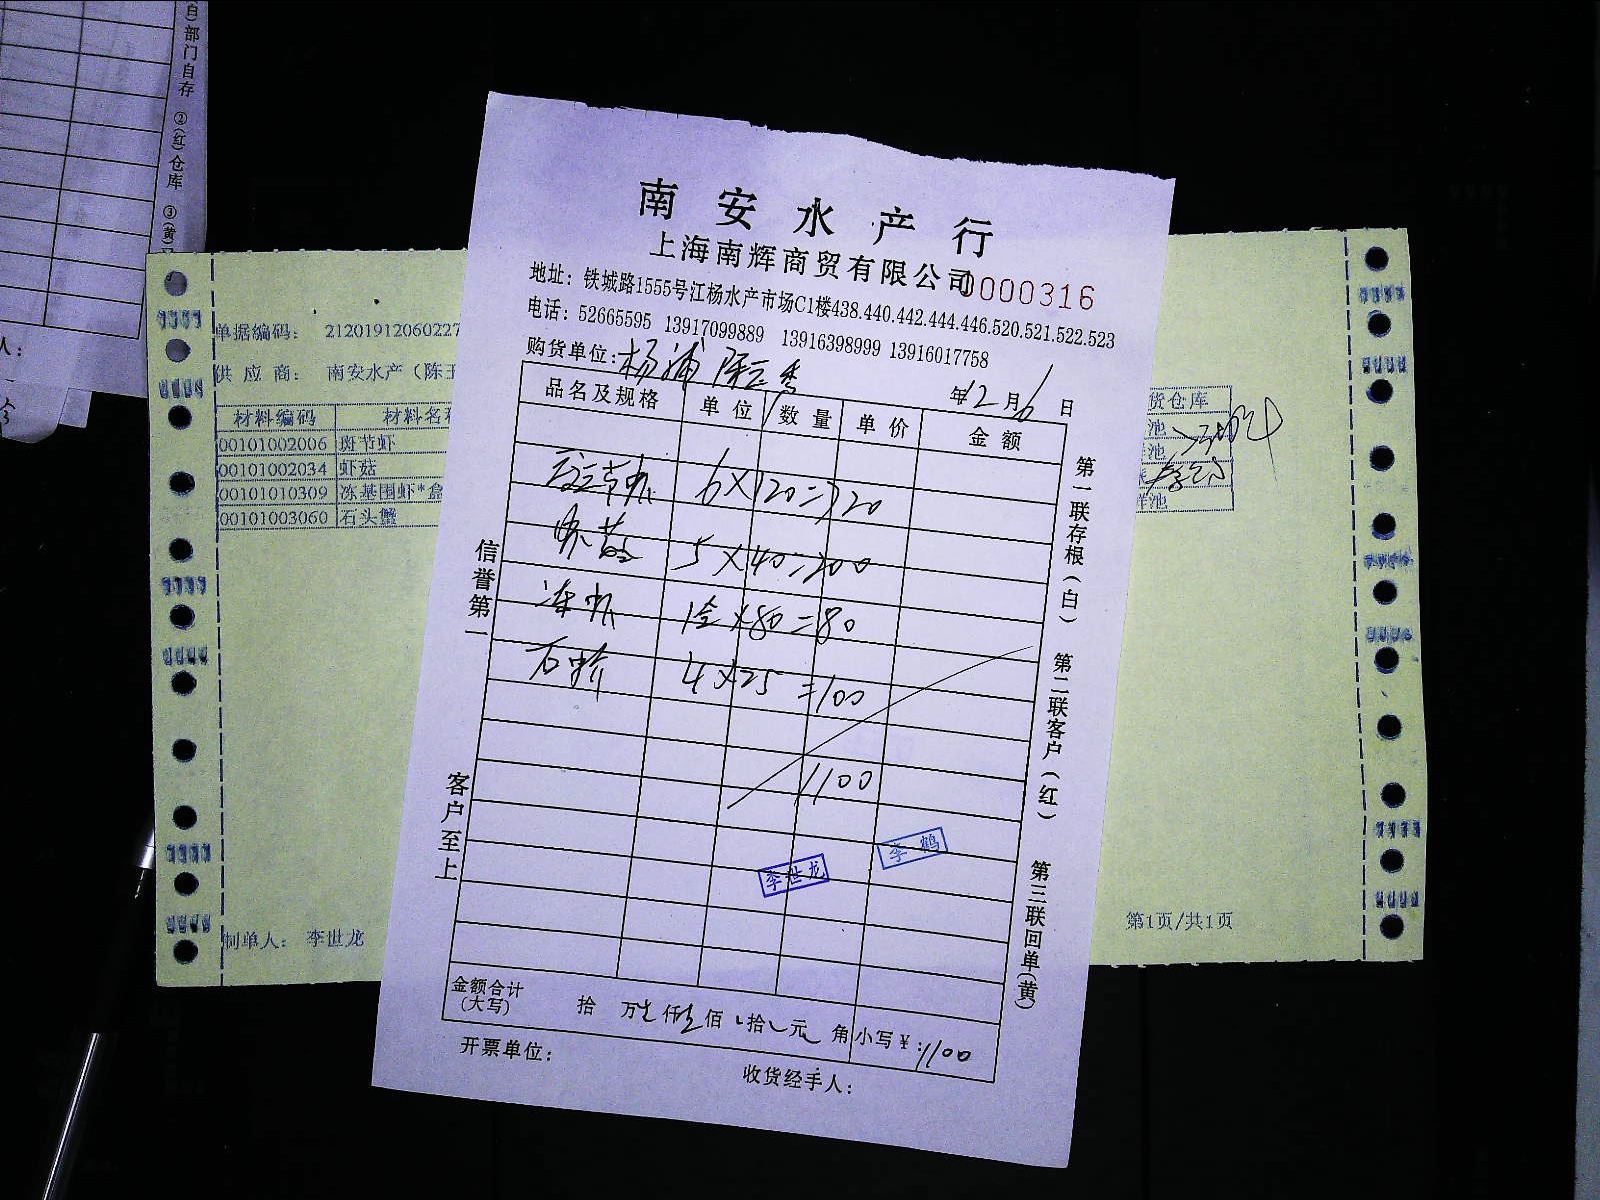 自)部门自存 ②(红)仓库 ③(黄)
人：
南安水产行
上海南辉商贸有限公司
0000316
地址：铁城路1555号江杨水产市场C1楼438.440.442.444.446.520.521.522.523
电话：52665595 13917099889 13916398999 13916017758
购货单位：杨浦 陈
年12月6日
品名及规格 单位 数量 单价 金额
节虾 6×120=720
虾菇 5×40=200
冻虾 1盒×80=80
石蟹 4×25=100
1100
李世龙
李鹤
金额合计(大写) 拾 万壹仟壹佰 拾 元 角 小写￥:1100
开票单位：
收货经手人：
信誉第一
客户至上
第一联存根(白)
第二联客户(红)
第三联回单(黄)
单据编码： 2120191206022
供应商： 南安水产（陈玉
材料编码 材料名称
00101002006 斑节虾
00101002034 虾菇
00101010309 冻基围虾*盒
00101003060 石头蟹
货仓库
池
池
鲜池
制单人： 李世龙
第1页/共1页